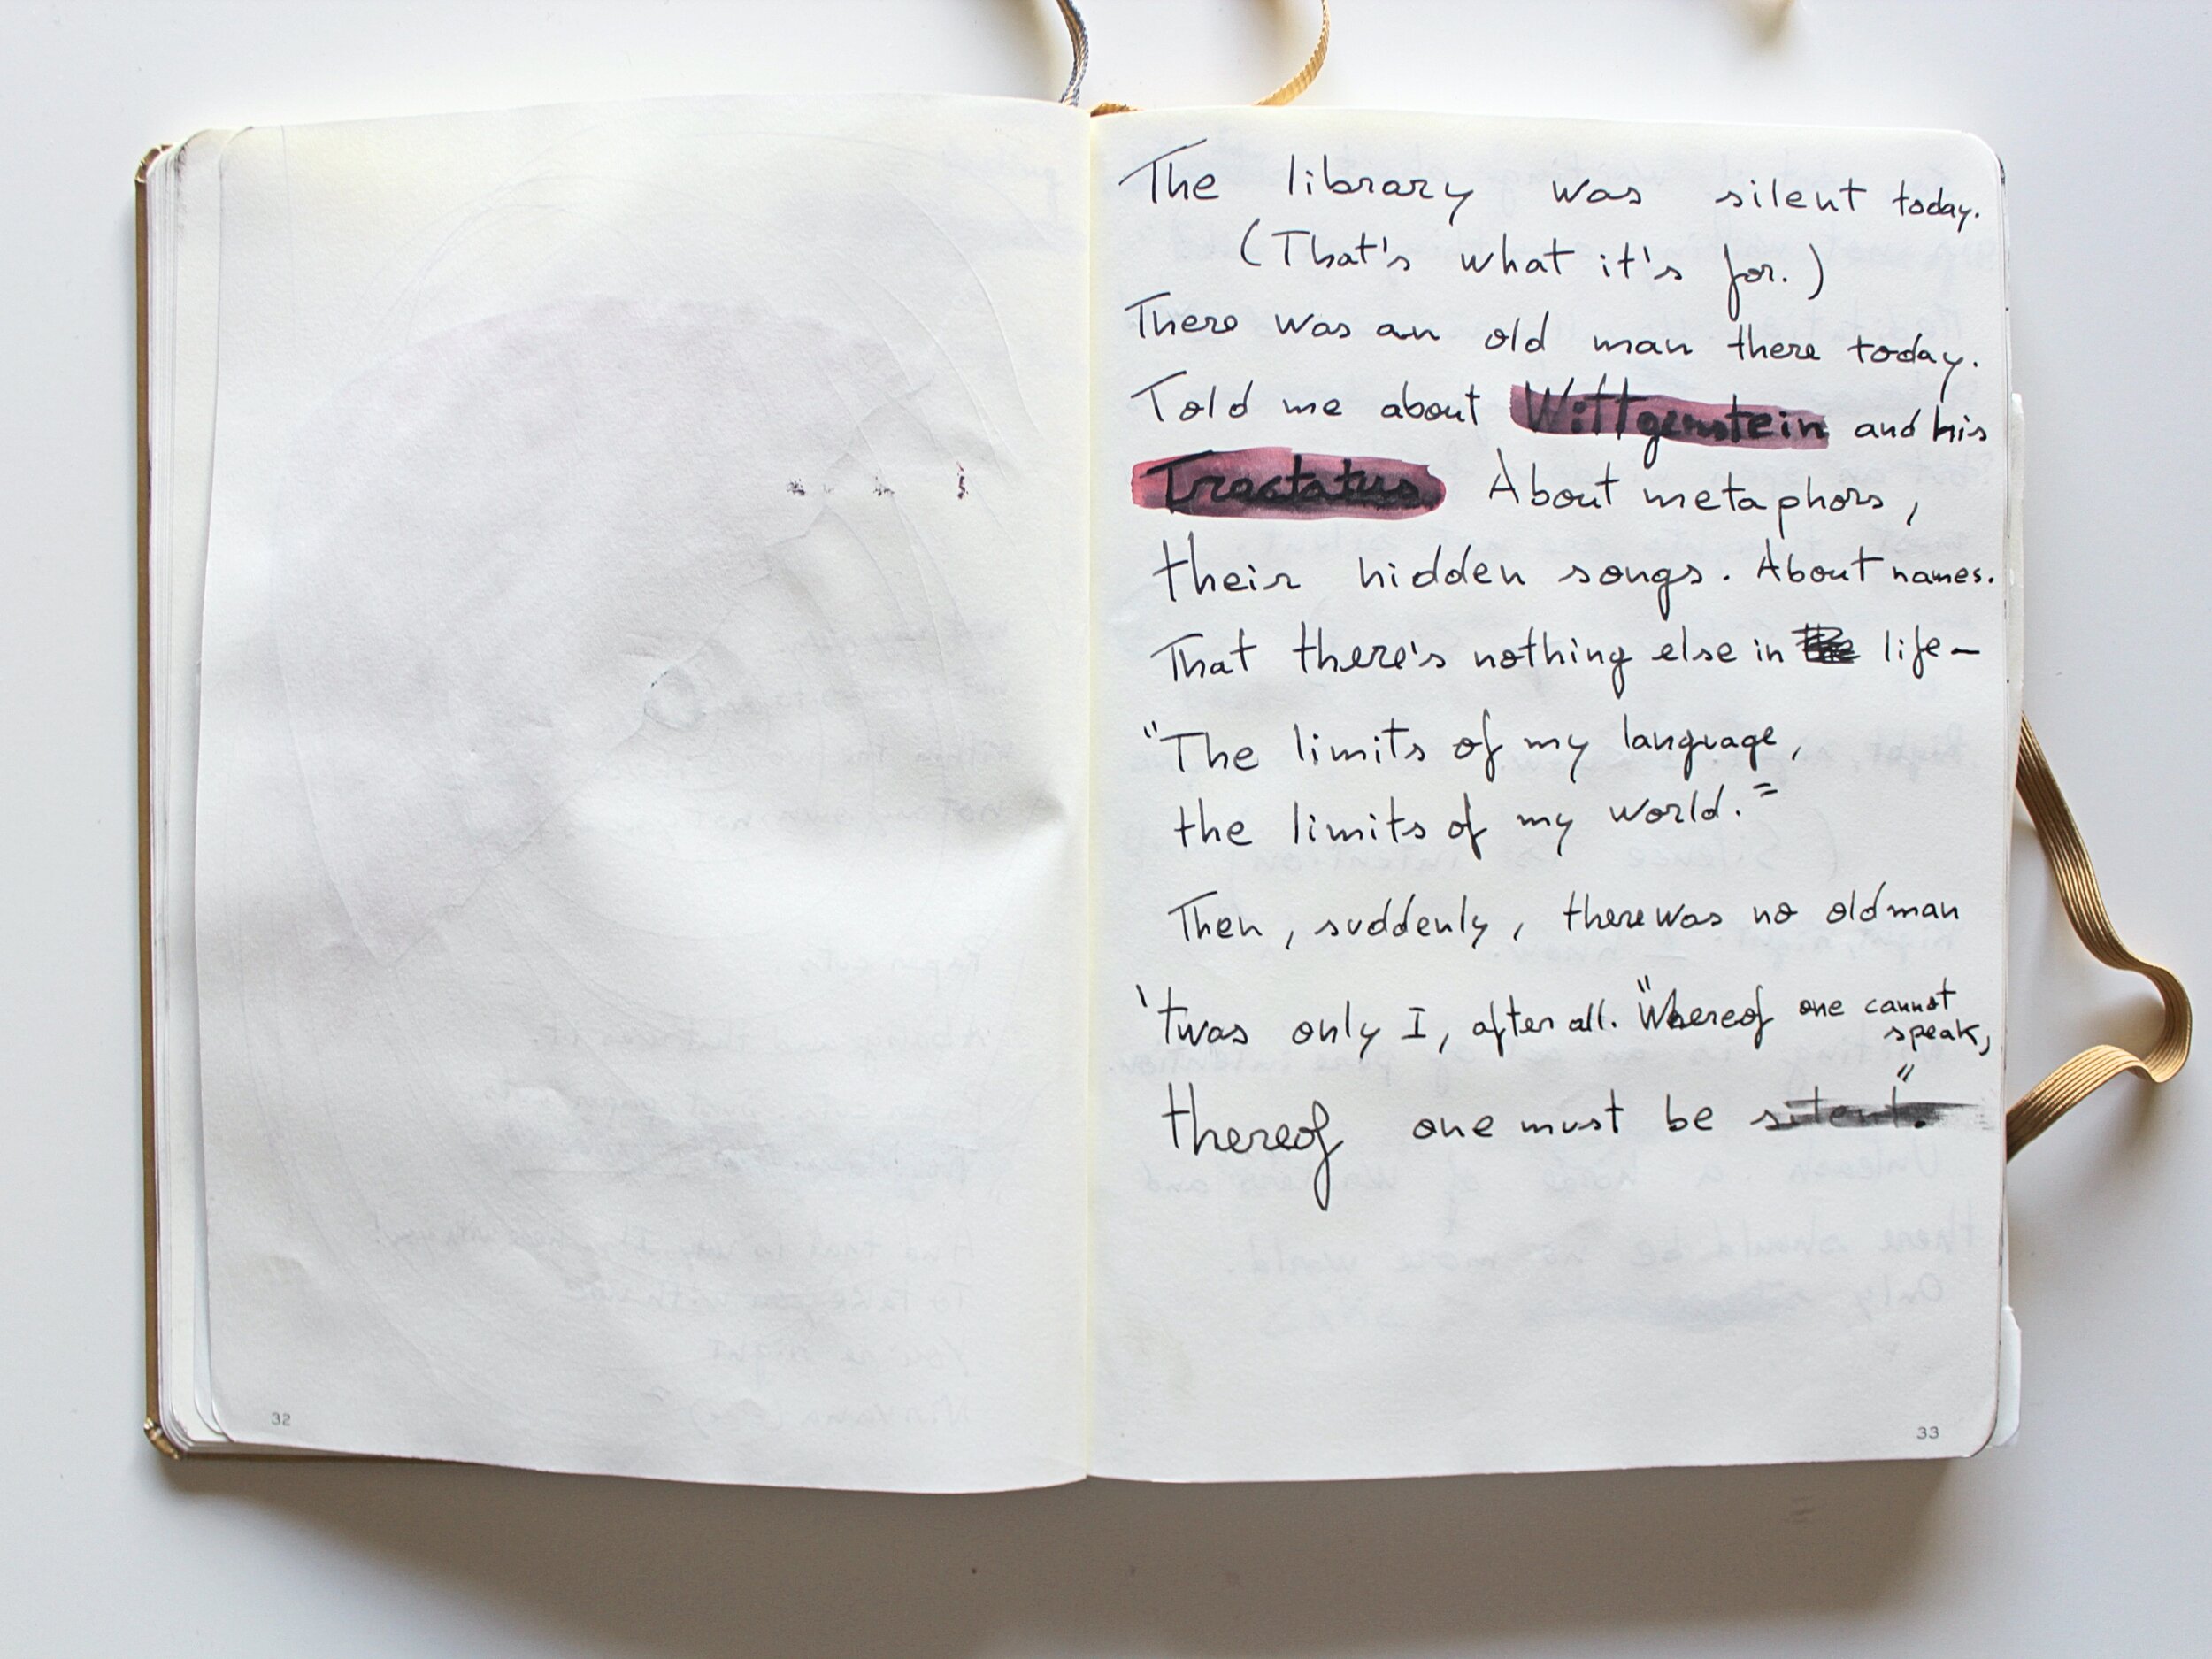 The library was silent today.
(That's what it's for.)
There was an old man there today.
Told me about Wittgenstein and his
Tractatus About metaphors,
their hidden songs. About names.
That there's nothing else in the life—
"The limits of my language,
the limits of my world."
Then, suddenly, there was no old man
'twas only I, after all. "Whereof one cannot
speak,
thereof one must be silent."
32
33